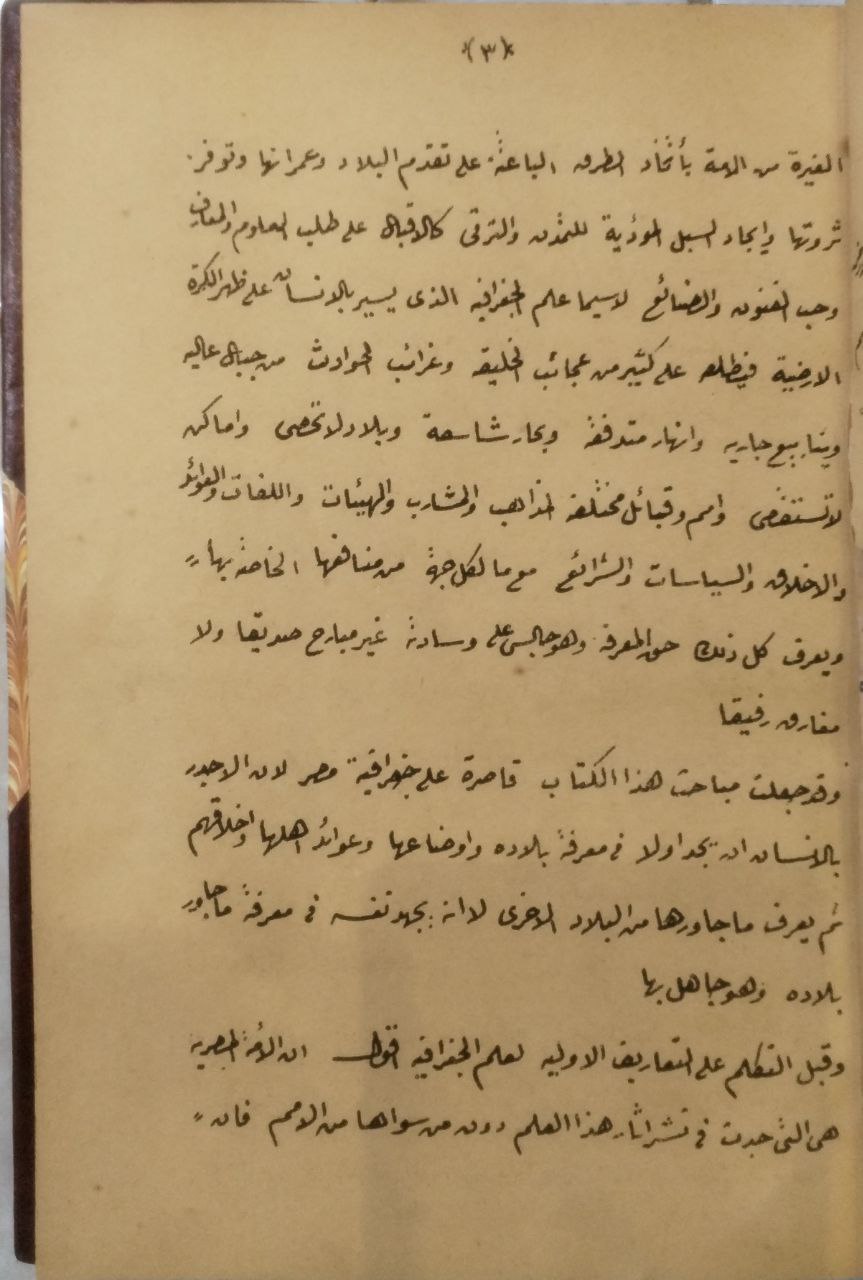 (٣)
الغيرة من الامة بأتخاذ الطرق الباعثة على تقدم البلاد وعمرانها وتوفر
ثروتها وإيجاد السبل المؤدية للتمدن والترقى كالاقبال على طلب العلوم والمعارف
وحب الفنون والصنائع لاسيما علم الجغرافيه الذى يسير بالانسان على ظهر الكرة
الارضية فيطلعه على كثير من عجائب الخليقه وغرائب الحوادث من جبال عاليه
وينابيع جاريه وانهار متدفقة وبحار شاسعة وبلاد لا تحصى واماكن
لا تستقصى وامم وقبائل مختلفة المذاهب والمشارب والهيئات واللغات والعوائد
والاخلاق والسياسات والشرائع مع ما لكل جهة من منافعها الخاصة بها
ويعرف كل ذلك حق المعرفة وهو جالس على وسادة غير مبارح صديقا ولا
مفارق رفيقا
وقد جعلت مباحث هذا الكتاب قاصرة على جغرافية مصر لان الاجدر
بالانسان ان يجد اولا فى معرفة بلاده واوضاعها وعوائد اهلها واخلاقهم
ثم يعرف ما جاورها من البلاد الاخرى لا انه يجهد نفسه فى معرفة ما جاور
بلاده وهو جاهل بها
وقبل التكلم على التعاريف الاوليه لعلم الجغرافيه اقول ان الأمة المصرية
هى التى جدت فى نشر اثار هذا العلم دون من سواها من الامم فان